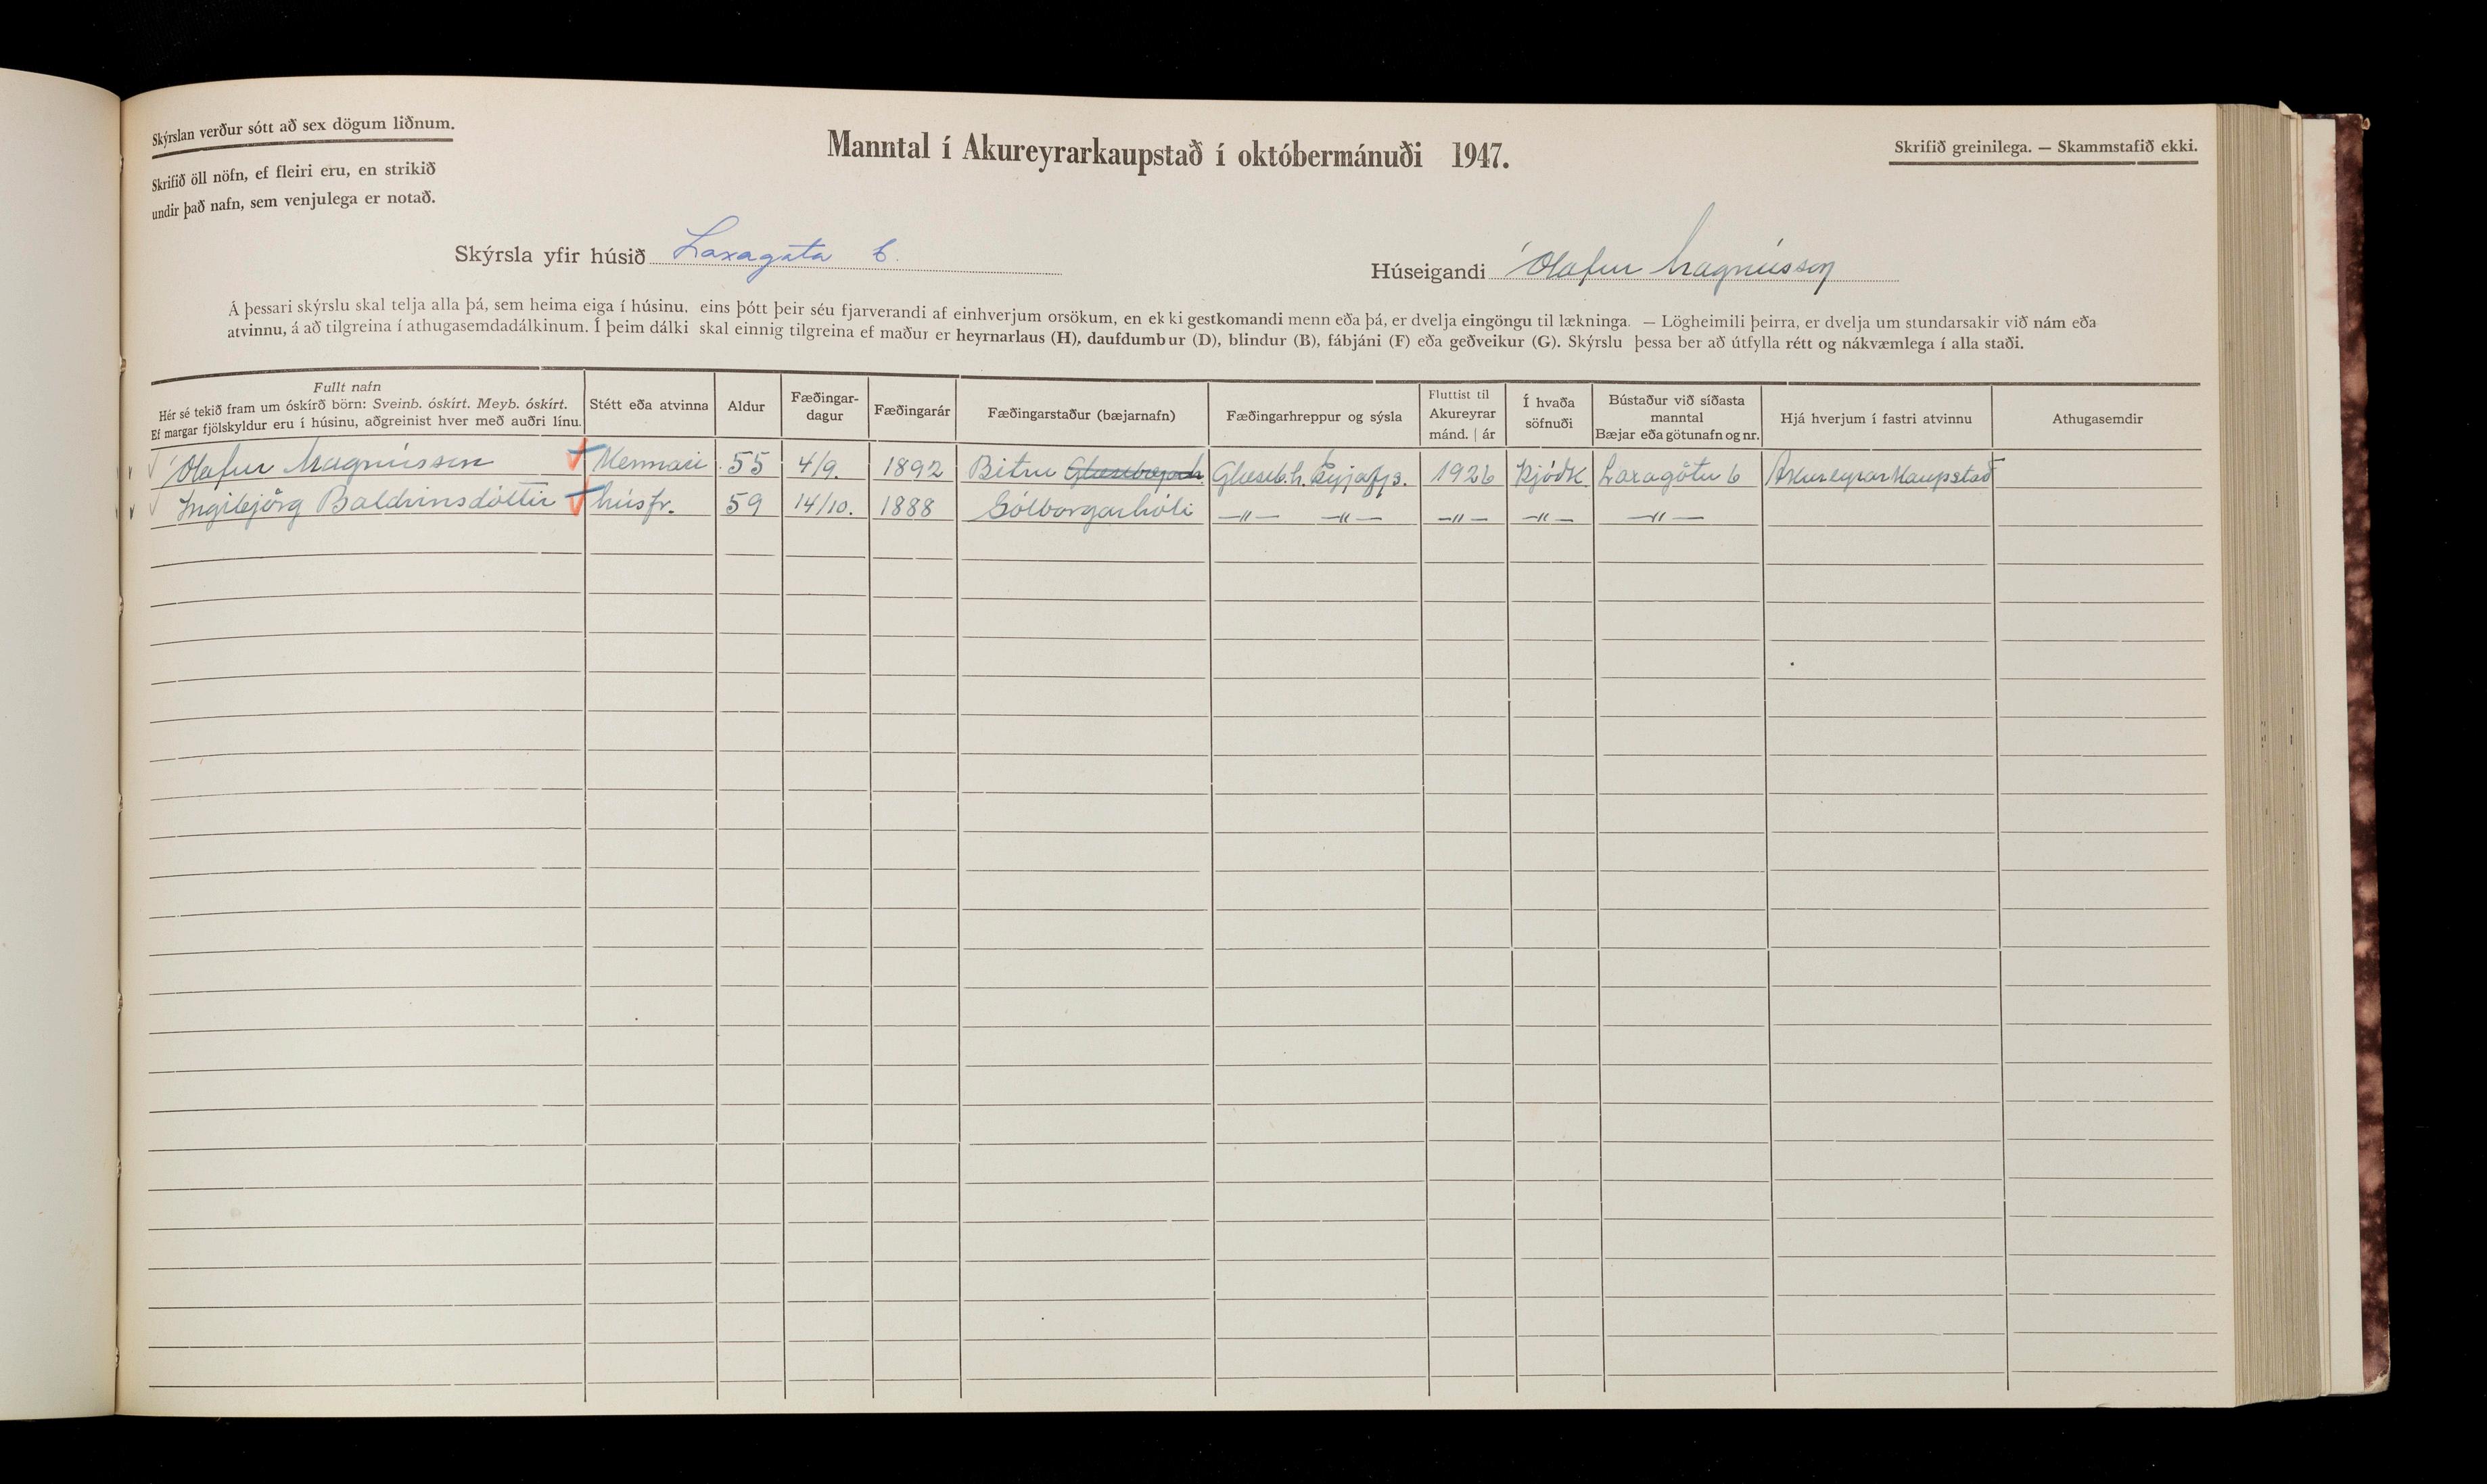 Skýrslan verður sótt að sex dögum liðnum.
Skrifið öll nöfn, ef fleiri eru, en strikið
undir það nafn, sem venjulega er notað.
Manntal í Akureyrarkaupstað í októbermánuði 1947.
Skrifið greinilega. — Skammstafið ekki.
Skýrsla yfir húsið Laxagata 6.
Húseigandi Ólafur Magnússon
Á þessari skýrslu skal telja alla þá, sem heima eiga í húsinu, eins þótt þeir séu fjarverandi af einhverjum orsökum, en ekki gestkomandi menn eða þá, er dvelja eingöngu til lækninga. — Lögheimili þeirra, er dvelja um stundarsakir við nám eða
atvinnu, á að tilgreina í athugasemdadálkinum. Í þeim dálki skal einnig tilgreina ef maður er heyrnarlaus (H), daufdumbur (D), blindur (B), fábjáni (F) eða geðveikur (G). Skýrslu þessa ber að útfylla rétt og nákvæmlega í alla staði.
Fullt nafn
Hér sé tekið fram um óskírð börn: Sveinb. óskírt. Meyb. óskírt.
Ef margar fjölskyldur eru í húsinu, aðgreinist hver með auðri línu.
Stétt eða atvinna
Aldur
Fæðingar-
dagur
Fæðingarár
Fæðingarstaður (bæjarnafn)
Fæðingarhreppur og sýsla
Fluttist til
Akureyrar
mánd. | ár
Í hvaða
söfnuði
Bústaður við síðasta
manntal
Bæjar eða götunafn og nr.
Hjá hverjum í fastri atvinnu
Athugasemdir
Ólafur Magnússon Kennari 55 4/9. 1892 Bitru Glæsib.h. Eyjafj.s. 1926 Þjóðk Laxagötu 6 Akureyrarkaupstað
Ingibjörg Baldvinsdóttir húsfr. 59 14/10. 1888 Sólborgarhóli —〃— —〃— —〃— —〃— —〃—